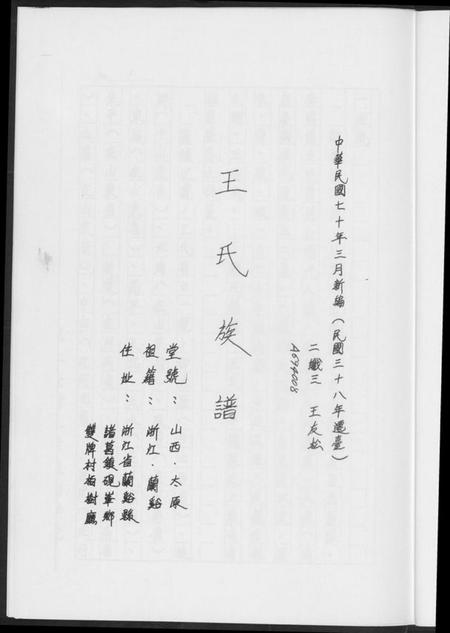 中華民國七十年三月新編（民國三十八年遷臺）
二纖三 王友松
A694008
王氏族譜
堂號：山西．太原
祖籍：浙江．蘭谿
住址：浙江省蘭谿縣
諸葛鎮硯峯鄉
雙牌村柏樹廳